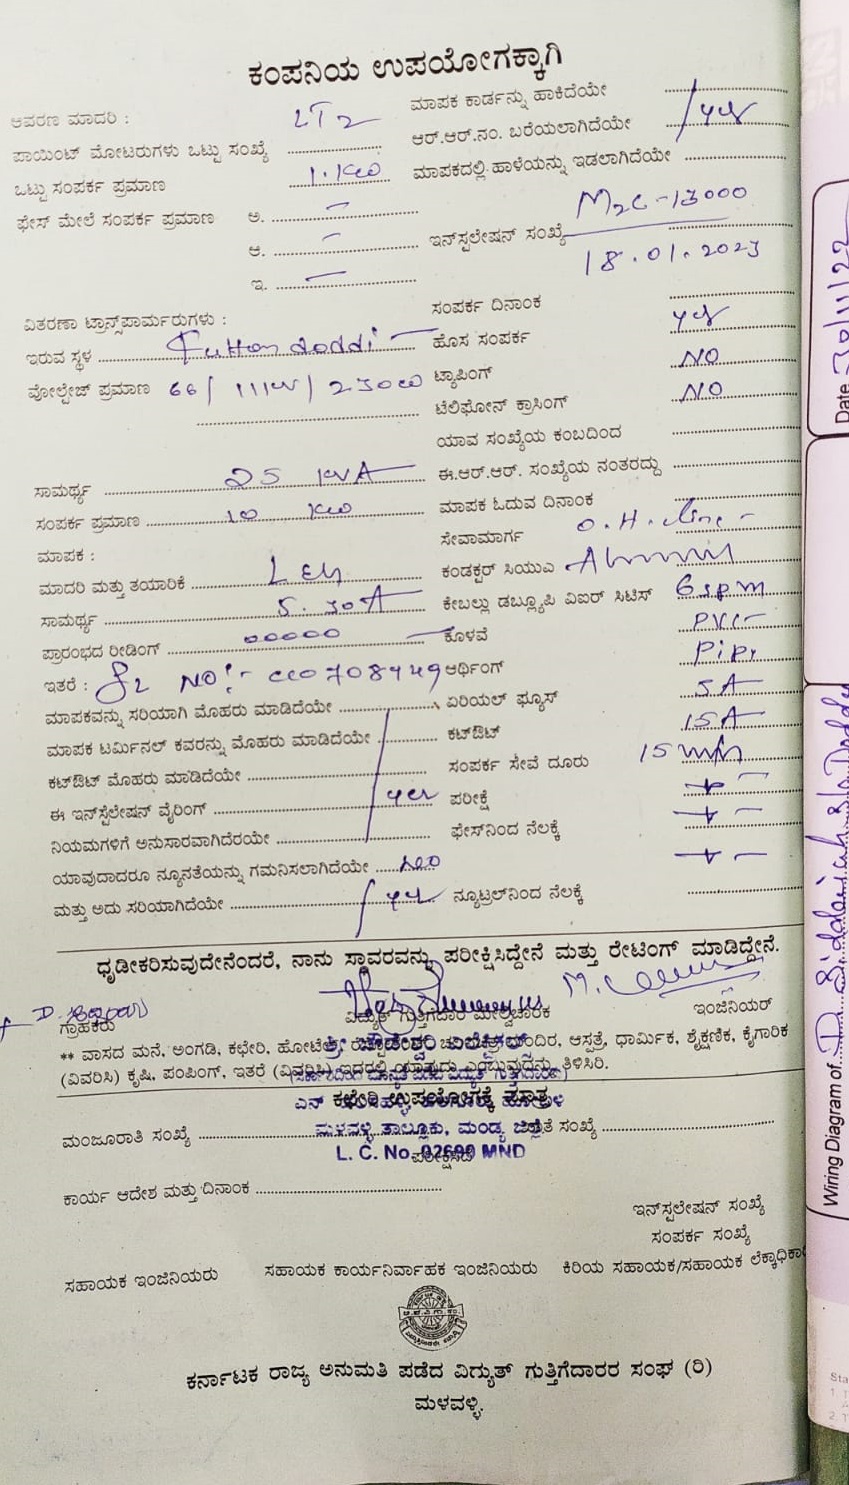 ಕಂಪನಿಯ ಉಪಯೋಗಕ್ಕಾಗಿ
ಆವರಣ ಮಾದರಿ : LT2
ಪಾಯಿಂಟ್ ಮೋಟರುಗಳು ಒಟ್ಟು ಸಂಖ್ಯೆ
ಒಟ್ಟು ಸಂಪರ್ಕ ಪ್ರಮಾಣ 1.KW
ಫೇಸ್ ಮೇಲೆ ಸಂಪರ್ಕ ಪ್ರಮಾಣ ಅ. –
ಆ. –
ಇ. –
ವಿತರಣಾ ಟ್ರಾನ್ಸ್‌ಪಾರ್ಮರುಗಳು :
ಇರುವ ಸ್ಥಳ
ವೋಲ್ಟೇಜ್ ಪ್ರಮಾಣ 66/
ಸಾಮರ್ಥ್ಯ 25 KVA
ಸಂಪರ್ಕ ಪ್ರಮಾಣ 10 KW
ಮಾಪಕ :
ಮಾದರಿ ಮತ್ತು ತಯಾರಿಕೆ
ಸಾಮರ್ಥ್ಯ 5.30A
ಪ್ರಾರಂಭದ ರೀಡಿಂಗ್ 00000
ಇತರೆ : NO:-
ಮಾಪಕವನ್ನು ಸರಿಯಾಗಿ ಮೊಹರು ಮಾಡಿದೆಯೇ
ಮಾಪಕ ಟರ್ಮಿನಲ್ ಕವರನ್ನು ಮೊಹರು ಮಾಡಿದೆಯೇ
ಕಟ್‌ಔಟ್ ಮೊಹರು ಮಾಡಿದೆಯೇ
ಈ ಇನ್‌ಸ್ಟಲೇಷನ್ ವೈರಿಂಗ್ yes
ನಿಯಮಗಳಿಗೆ ಅನುಸಾರವಾಗಿದೆರಯೇ
ಯಾವುದಾದರೂ ನ್ಯೂನತೆಯನ್ನು ಗಮನಿಸಲಾಗಿದೆಯೇ NO
ಮತ್ತು ಅದು ಸರಿಯಾಗಿದೆಯೇ yes
ಮಾಪಕ ಕಾರ್ಡನ್ನು ಹಾಕಿದೆಯೇ
ಆರ್.ಆರ್.ನಂ. ಬರೆಯಲಾಗಿದೆಯೇ yes
ಮಾಪಕದಲ್ಲಿ ಹಾಳೆಯನ್ನು ಇಡಲಾಗಿದೆಯೇ
ಇನ್‌ಸ್ಟಲೇಷನ್ ಸಂಖ್ಯೆ M2C-13000
18.01.2023
ಸಂಪರ್ಕ ದಿನಾಂಕ
ಹೊಸ ಸಂಪರ್ಕ yes
ಟ್ಯಾಪಿಂಗ್ NO
ಟೆಲಿಫೋನ್ ಕ್ರಾಸಿಂಗ್ NO
ಯಾವ ಸಂಖ್ಯೆಯ ಕಂಬದಿಂದ
ಈ.ಆರ್.ಆರ್. ಸಂಖ್ಯೆಯ ನಂತರದ್ದು
ಮಾಪಕ ಓದುವ ದಿನಾಂಕ
ಸೇವಾಮಾರ್ಗ O.H.Line –
ಕಂಡಕ್ಟರ್ ಸಿಯುಎ
ಕೇಬಲ್ಲು ಡಬ್ಲ್ಯೂಪಿ ವಿಐರ್ ಸಿಟಿಸ್
ಕೊಳವೆ PVC –
ಆರ್ಥಿಂಗ್ Pipe
ಏರಿಯಲ್ ಫ್ಯೂಸ್ 5A
ಕಟ್‌ಔಟ್ 15A
ಸಂಪರ್ಕ ಸೇವೆ ದೂರು 15
ಪರೀಕ್ಷೆ + –
ಫೇಸ್‌ನಿಂದ ನೆಲಕ್ಕೆ + –
+ –
ನ್ಯೂಟ್ರಲ್‌ನಿಂದ ನೆಲಕ್ಕೆ
ಧೃಡೀಕರಿಸುವುದೇನೆಂದರೆ, ನಾನು ಸ್ಥಾವರವನ್ನು ಪರೀಕ್ಷಿಸಿದ್ದೇನೆ ಮತ್ತು ರೇಟಿಂಗ್ ಮಾಡಿದ್ದೇನೆ.
ಗ್ರಾಹಕರು ವಿದ್ಯುತ್ ಗುತ್ತಿಗೆದಾರ ಮೇಲ್ವಿಚಾರಕ ಇಂಜಿನಿಯರ್
** ವಾಸದ ಮನೆ, ಅಂಗಡಿ, ಕಛೇರಿ, ಹೋಟೆಲ್, ಆಸ್ಪತ್ರೆ, ಧಾರ್ಮಿಕ, ಶೈಕ್ಷಣಿಕ, ಕೈಗಾರಿಕ
(ವಿವರಿಸಿ) ಕೃಷಿ, ಪಂಪಿಂಗ್, ಇತರೆ (ವಿವರಿಸಿ) ಇದರಲ್ಲಿ ಯಾವುದು ಎಂಬುವುದನ್ನು ತಿಳಿಸಿರಿ.
ಕಛೇರಿ ಉಪಯೋಗಕ್ಕೆ ಮಾತ್ರ
ಮಳವಳ್ಳಿ ತಾಲ್ಲೂಕು, ಮಂಡ್ಯ ಜಿಲ್ಲೆ
L. C. No. 02600 MND
ಮಂಜೂರಾತಿ ಸಂಖ್ಯೆ
ಕಾರ್ಯ ಆದೇಶ ಮತ್ತು ದಿನಾಂಕ
ಇನ್‌ಸ್ಟಲೇಷನ್ ಸಂಖ್ಯೆ
ಸಂಪರ್ಕ ಸಂಖ್ಯೆ
ಸಹಾಯಕ ಇಂಜಿನಿಯರು ಸಹಾಯಕ ಕಾರ್ಯನಿರ್ವಾಹಕ ಇಂಜಿನಿಯರು ಕಿರಿಯ ಸಹಾಯಕ/ಸಹಾಯಕ
ಕರ್ನಾಟಕ ರಾಜ್ಯ ಅನುಮತಿ ಪಡೆದ ವಿದ್ಯುತ್ ಗುತ್ತಿಗೆದಾರರ ಸಂಘ (ರಿ)
ಮಳವಳ್ಳಿ.
Date 30/11/22
Wiring Diagram of D. Siddaiah S/o Doddu